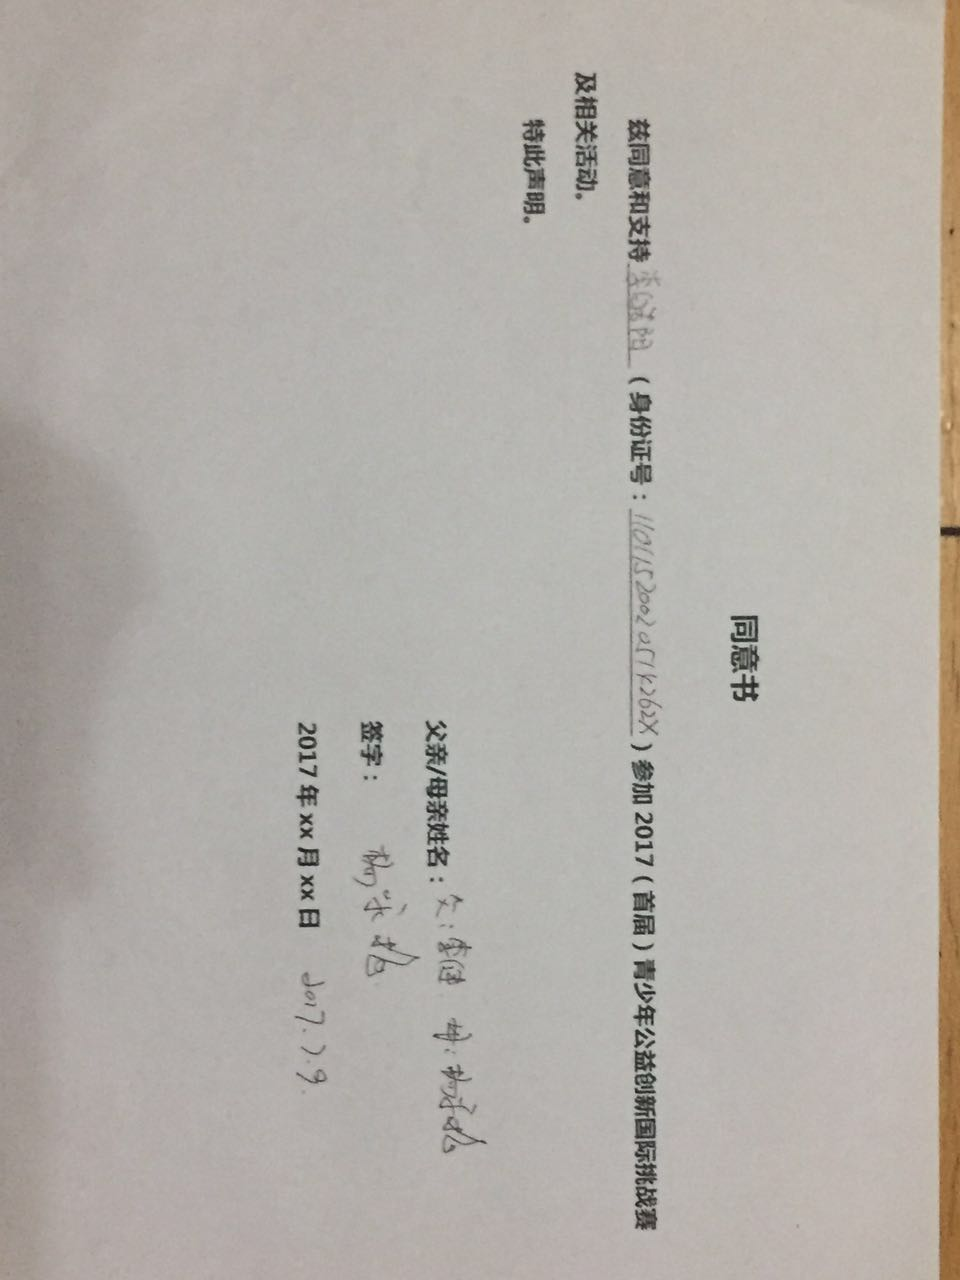 同意书
兹同意和支持 李 阳 （身份证号：11011520020514262X）参加 2017（首届）青少年公益创新国际挑战赛
及相关活动。
特此声明。
父亲/母亲姓名：父：李健 母：杨
签字： 杨
2017 年 xx 月 xx 日 2017.7.9.